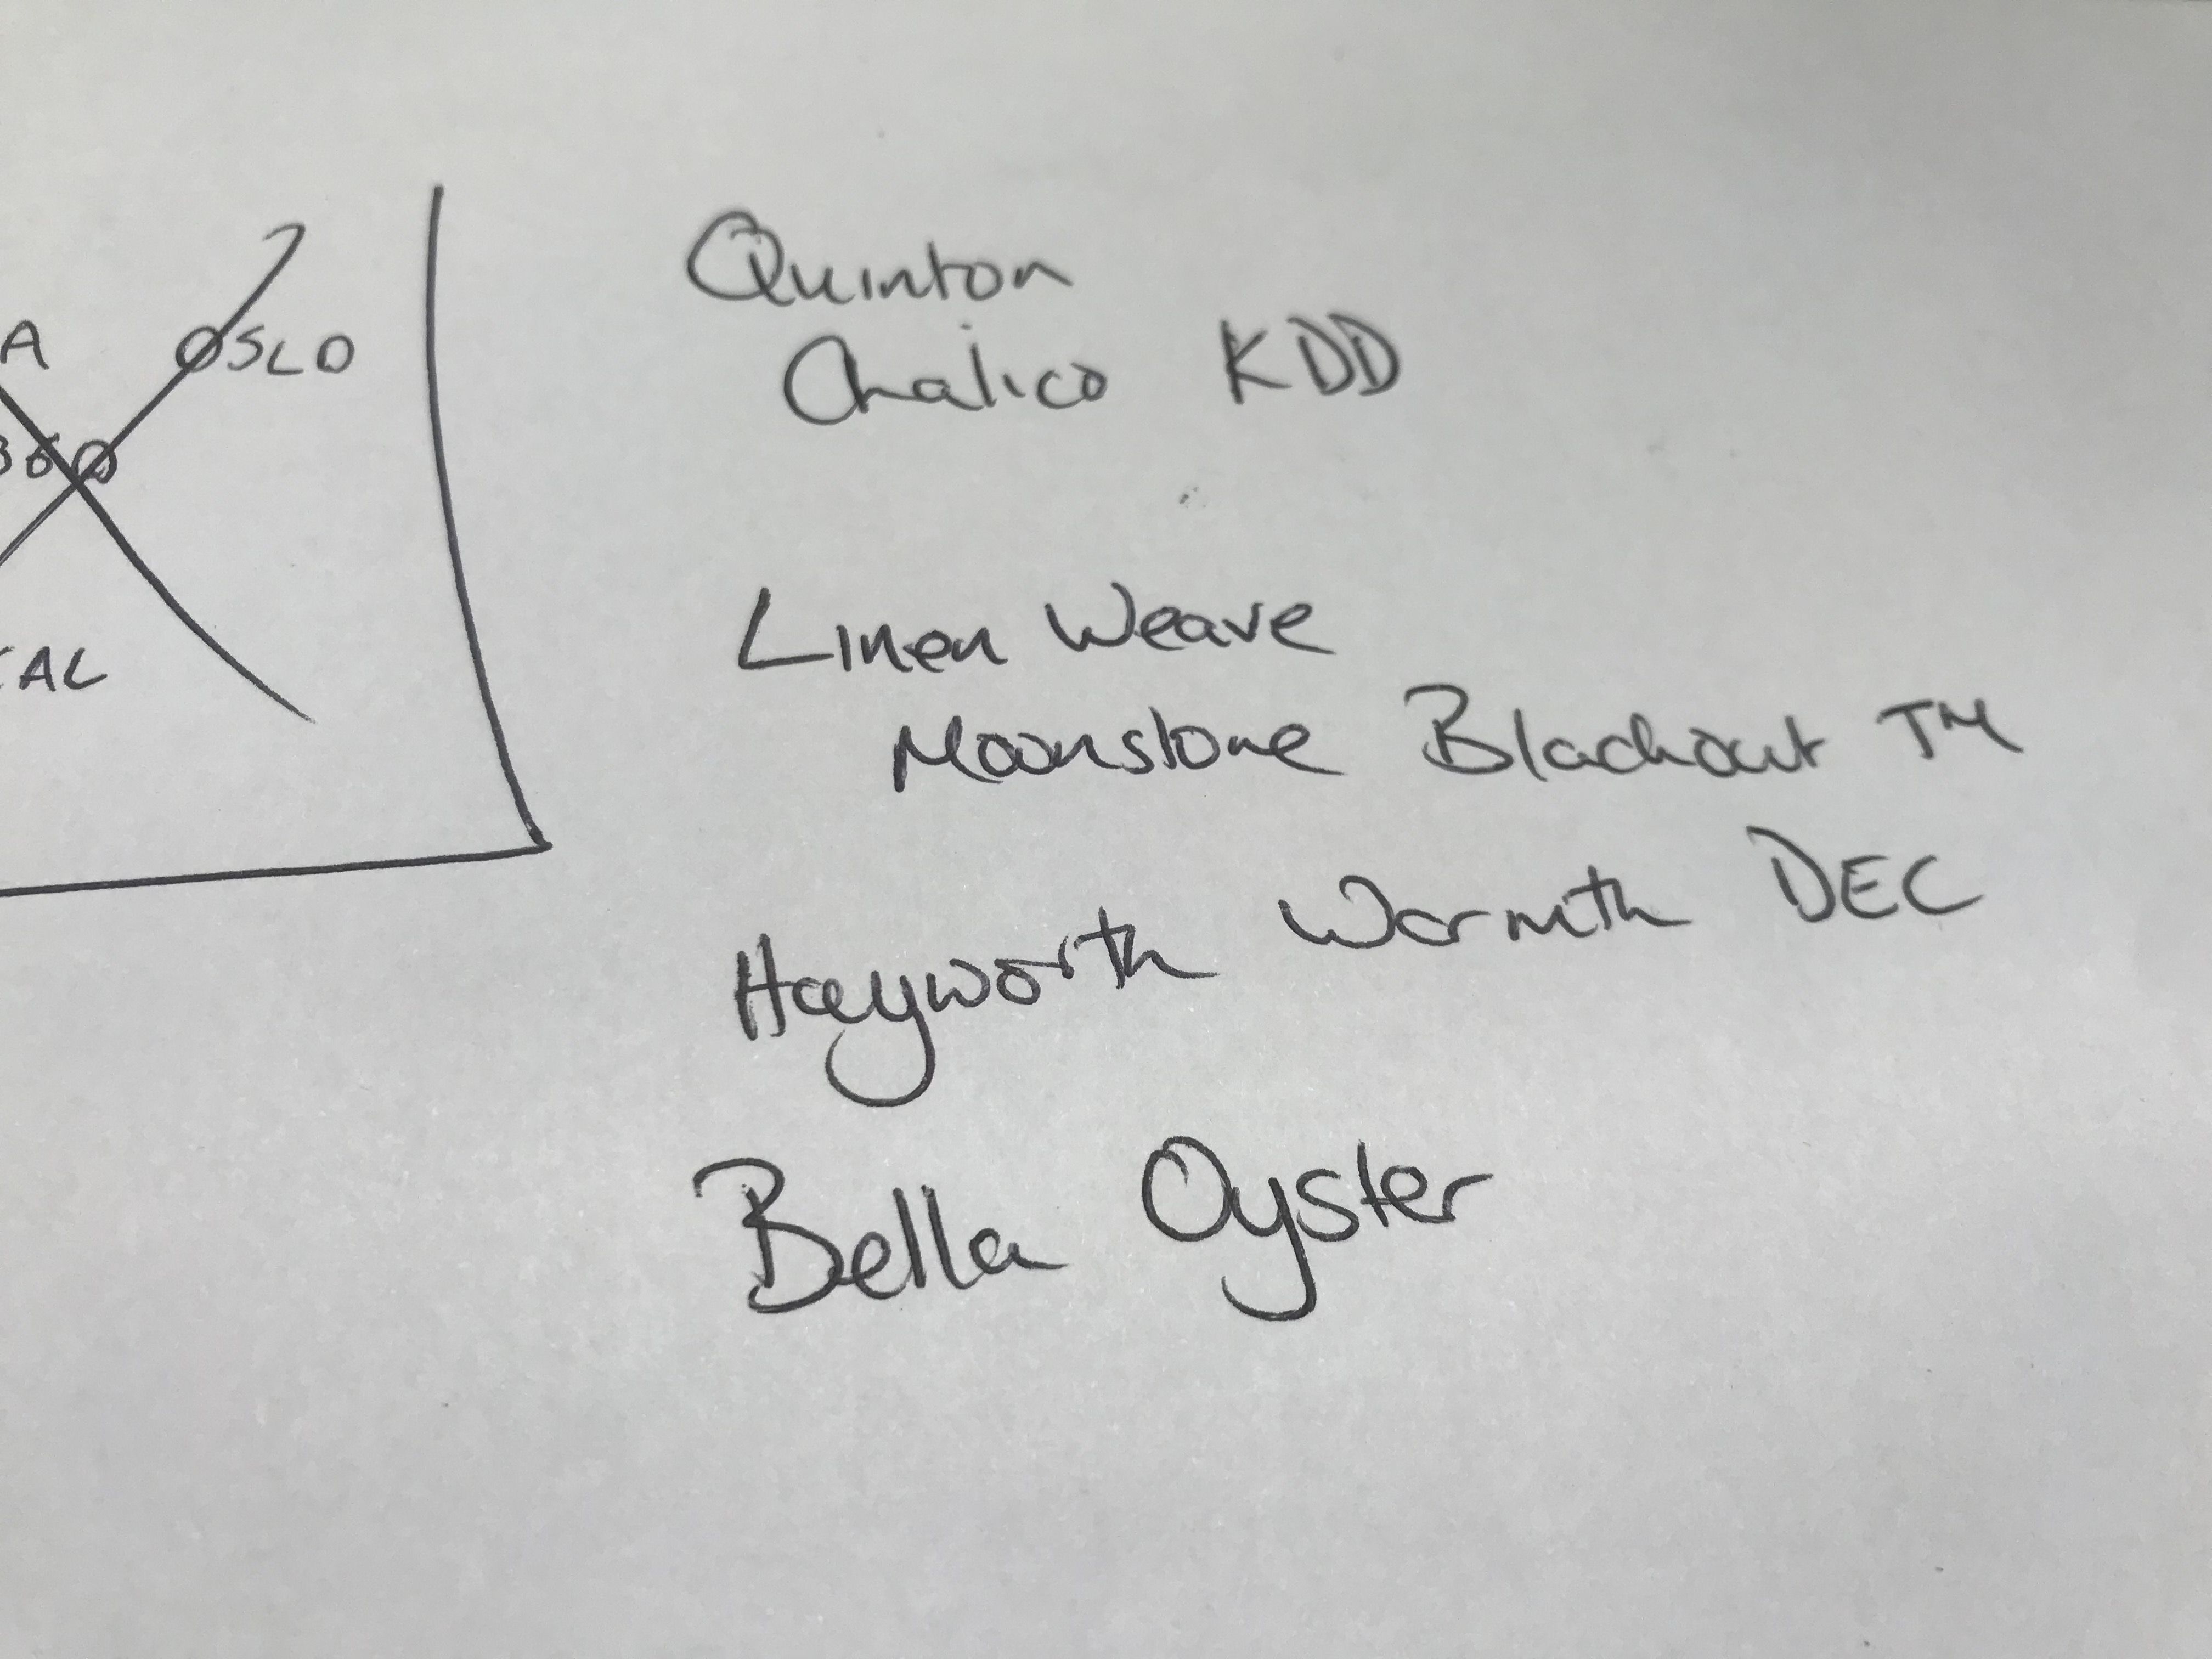 A OSLO
360
CAL
Quinton
Chalico KDD
Linen Weave
Moonstone Blackout TM
Hayworth Warmth DEC
Bella Oyster